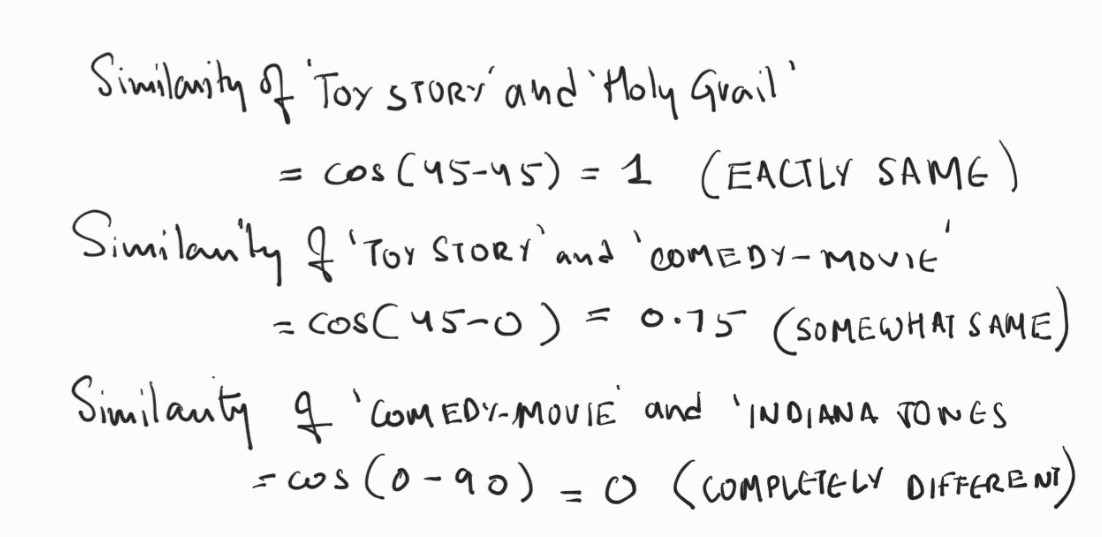 Similarity of 'TOY STORY' and 'Holy Grail'
= cos(45-45) = 1 (EACTLY SAME)
Similarity of 'TOY STORY' and 'COMEDY-MOVIE'
= cos(45-0) = 0.75 (SOMEWHAT SAME)
Similarity of 'COMEDY-MOVIE' and 'INDIANA JONES
= cos(0-90) = 0 (COMPLETELY DIFFERENT)